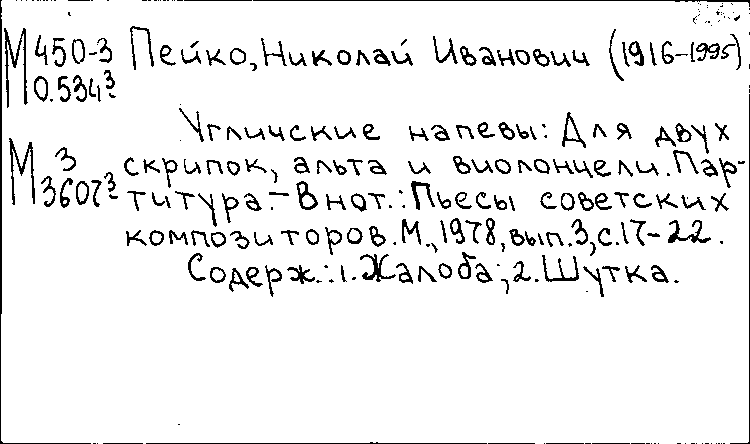 М 450-3 Пейко, Николай Иванович (1916-1995)
0.534з
Угличские напевы: Для двух
М 3 скрипок, альта и виолончели. Пар-
3607з титура.- В нот.: Пьесы советских
композиторов. М., 1978, вып. 3, с. 17-22.
Содерж.: 1. Жалоба; 2. Шутка.